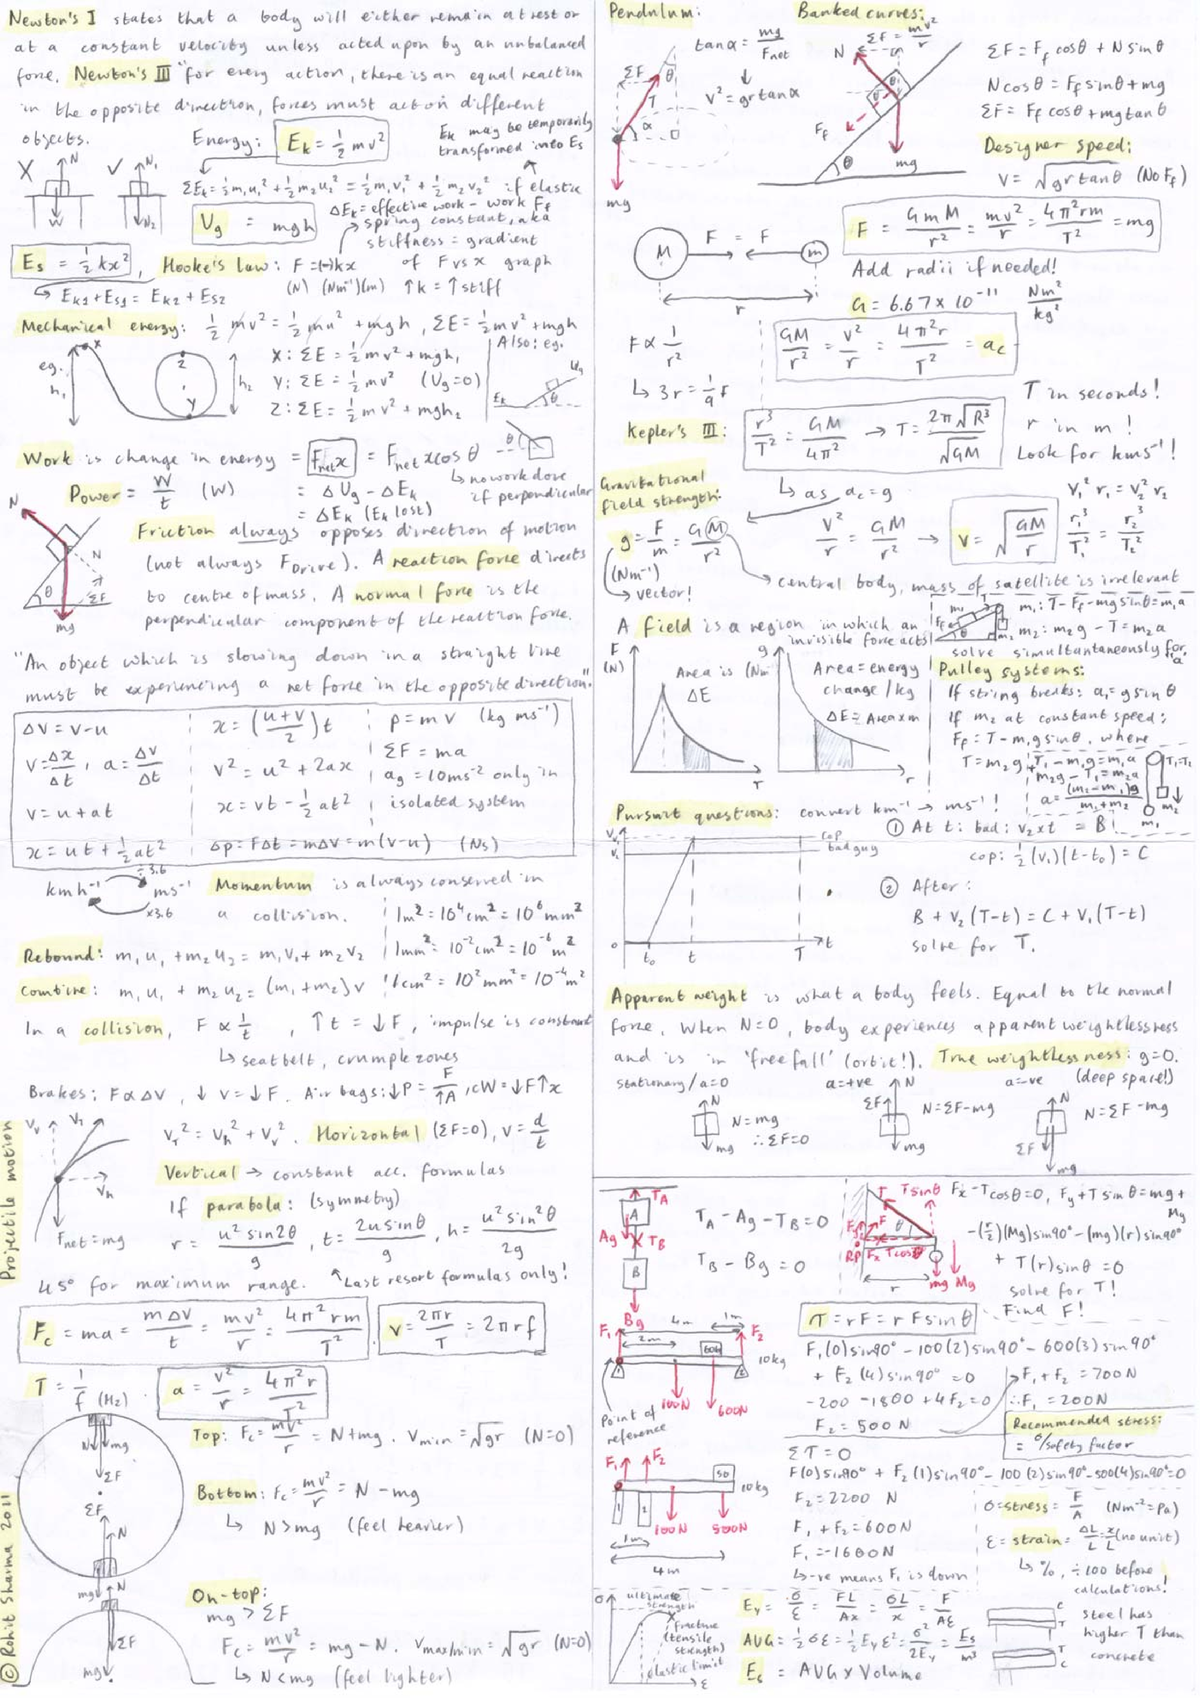 Newton's I states that a body will either remain at rest or
at a constant velocity unless acted upon by an unbalanced
force. Newton's III "for every action, there is an equal reaction
in the opposite direction, forces must act on different
objects.
Energy: Ek = ½mv²
Ek may be temporarily
transformed into Es
X N W ✓ N₁ N₂
ΣEk = ½m₁u₁² + ½m₂u₂² = ½m₁v₁² + ½m₂v₂² if elastic
ΔEk = effective work - work Ff
Ug = mgh
spring constant, aka
stiffness = gradient
of F vs x graph
Es = ½kx², Hooke's law: F = (-)kx
(N) (Nm⁻¹)(m) ↑k = ↑stiff
↳ Ek1 + Es1 = Ek2 + Es2
Mechanical energy: ½mv² = ½mu² + mgh, ΣE = ½mv² + mgh
eg. h₁ x z y h₂
X: ΣE = ½mv² + mgh₁
Y: ΣE = ½mv² (Ug=0)
Z: ΣE = ½mv² + mgh₂
Also: eg.
Ek θ Ug
Work is change in energy = Fnet x = Fnet x cos θ
↳ no work done
if perpendicular
Power = W/t (W)
= ΔUg - ΔEk
= ΔEk (Ek lost)
N θ N ΣF mg
Friction always opposes direction of motion
(not always FDrive). A reaction force directs
to centre of mass. A normal force is the
perpendicular component of the reaction force.
"An object which is slowing down in a straight line
must be experiencing a net force in the opposite direction."
Δv = v-u
v = Δx/Δt, a = Δv/Δt
v = u + at
x = ut + ½at²
x = ((u+v)/2)t
v² = u² + 2ax
x = vt - ½at²
Δp = FΔt = mΔv = m(v-u) (Ns)
p = mv (kg ms⁻¹)
ΣF = ma
ag = 10ms⁻² only in
isolated system
kmh⁻¹ ÷3.6 ms⁻¹ ×3.6
Momentum is always conserved in
a collision.
1m² = 10⁴cm² = 10⁶mm²
1mm² = 10⁻²cm² = 10⁻⁶m²
1cm² = 10²mm² = 10⁻⁴m²
Rebound: m₁u₁ + m₂u₂ = m₁v₁ + m₂v₂
Combine: m₁u₁ + m₂u₂ = (m₁+m₂)v
In a collision, F ∝ 1/t, ↑t = ↓F, impulse is constant
↳ seatbelt, crumple zones
Brakes: F ∝ Δv, ↓v = ↓F. Air bags: ↓P = F/↑A, cW = ↓F↑x
Projectile motion
Vv VT Vh Fnet = mg
VT² = Vh² + Vv². Horizontal (ΣF=0), v = d/t
Vertical → constant acc. formulas
If parabola: (symmetry)
r = u² sin2θ/g, t = 2u sinθ/g, h = u² sin²θ/2g
45° for maximum range. ↑ Last resort formulas only!
Fc = ma = mΔv/t = mv²/r = 4π²rm/T²
v = 2πr/T = 2πrf
T = 1/f (Hz)
a = v²/r = 4π²r/T²
N mg ΣF ΣF N mg
Top: Fc = mv²/r = N + mg. Vmin = √gr (N=0)
Bottom: Fc = mv²/r = N - mg
↳ N > mg (feel heavier)
On-top:
mg > ΣF
Fc = mv²/r = mg - N. Vmax/min = √gr (N=0)
↳ N < mg (feel lighter)
N ΣF mg
© Rohit Sharma 2011
Pendulum:
ΣF θ T α mg
tan α = mg/Fnet
v² = gr tan α
Banked curves:
ΣF = mv²/r
N θ θ Ff mg θ
ΣF = Ff cosθ + N sinθ
N cosθ = Ff sinθ + mg
ΣF = Ff cosθ + mg tanθ
Designer speed:
v = √gr tanθ (No Ff)
M F = F m r
F = GmM/r² = mv²/r = 4π²rm/T² = mg
Add radii if needed!
G = 6.67 × 10⁻¹¹ Nm²/kg²
F ∝ 1/r²
↳ 3r = 1/9 F
GM/r² = v²/r = 4π²r/T² = ac
Kepler's III: r³/T² = GM/4π² → T = 2π√R³/√GM
T in seconds!
r in m!
Look for kms⁻¹!
Gravitational
field strength:
↳ as ac = g
g = F/m = GM/r²
(Nm⁻¹)
↳ vector!
v²/r = GM/r² → v = √(GM/r)
V₁² r₁ = V₂² r₂
r₁³/T₁² = r₂³/T₂²
→ central body, mass of satellite is irrelevant
A field is a region in which an
invisible force acts
m₁: T - Ff - mg sinθ = m₁a
m₂: m₂g - T = m₂a
solve simultantaneously for a
F (N) Area is ΔE r
g (Nm Area = energy
change/kg
ΔE = Area × m
r
Pulley systems:
If string breaks: a₁ = g sinθ
If m₂ at constant speed:
Ff = T - m₁g sinθ, where
T = m₂g
T₁ - m₁g = m₁a
m₂g - T₁ = m₂a
a = (m₂-m₁)g/m₁+m₂
T₁=T₁ m₂ m₁
Pursuit questions: convert kmh⁻¹ → ms⁻¹!
cop
bad guy
V₁ 0 t₀ t T t
① At t: bad: v₂ × t = B
cop: ½(v₁)(t-t₀) = C
② After:
B + v₂(T-t) = C + v₁(T-t)
solve for T.
Apparent weight is what a body feels. Equal to the normal
force. When N=0, body experiences apparent weightlessness
and is in 'free fall' (orbit!). True weightlessness: g=0.
(deep space!)
stationary/a=0
N mg N = mg
∴ ΣF = 0
a=+ve
ΣF N mg N = ΣF - mg
a=-ve
N ΣF mg N = ΣF - mg
TA A Ag TB B Bg
TA - Ag - TB = 0
TB - Bg = 0
T T sinθ F θ Fx T cosθ RP r mg Mg
Fx - T cosθ = 0, Fy + T sinθ = mg + Mg
-(r/2)(Mg) sin90° - (mg)(r) sin90°
+ T(r) sinθ = 0
solve for T!
Find F!
τ = rF = rF sinθ
F₁ 4m 1m F₂
2m 60k 10kg
100N 600N
Point of
reference
F₁(0) sin90° - 100(2) sin90° - 600(3) sin90°
+ F₂(4) sin90° = 0
-200 - 1800 + 4F₂ = 0
F₂ = 500N
F₁ + F₂ = 700N
∴ F₁ = 200N
Recommended stress:
= σ/safety factor
F₁ F₂ 50 10kg
1 2 100N 500N
1m
4m
Στ = 0
F(0) sin90° + F₂(1) sin90° - 100(2) sin90° - 500(4) sin90° = 0
F₂ = 2200 N
F₁ + F₂ = 600N
F₁ = -1600N
↳ -ve means F₁ is down
σ = stress = F/A (Nm⁻² = Pa)
ε = strain = ΔL/L = x/L (no unit)
↳ %, ÷100 before
calculations!
σ ultimate
strength
fracture
(tensile
strength)
elastic limit
ε
EY = σ/ε = FL/Ax = σL/x = F/Aε
AUG = ½σε = ½EYε² = σ²/2EY = Es/m³
Es = AUG × Volume
C T T C
steel has
higher T than
concrete